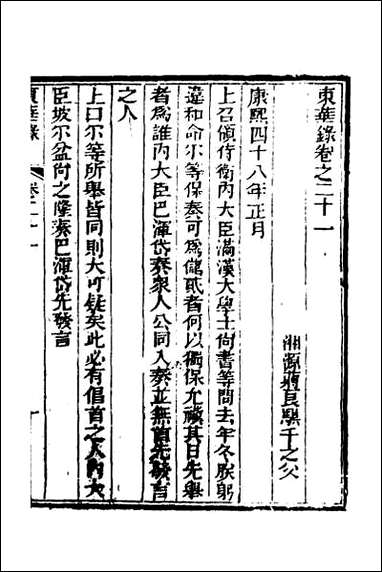 東華錄卷之二十一
湘源蔣良騏千之父
康熙四十八年正月
上召領侍衛內大臣滿漢大學士尙書等問去年冬朕躬
違和命尓等保奏可爲儲貳者何以獨保允禩其日先舉
者爲誰內大臣巴渾岱奏衆人公同入奏並無首先發言
之人
上曰尓等所舉皆同則大可疑矣此必有倡首之人內大
臣坡尓盆向之隆奏巴渾岱先發言
東華錄
卷二十一
一